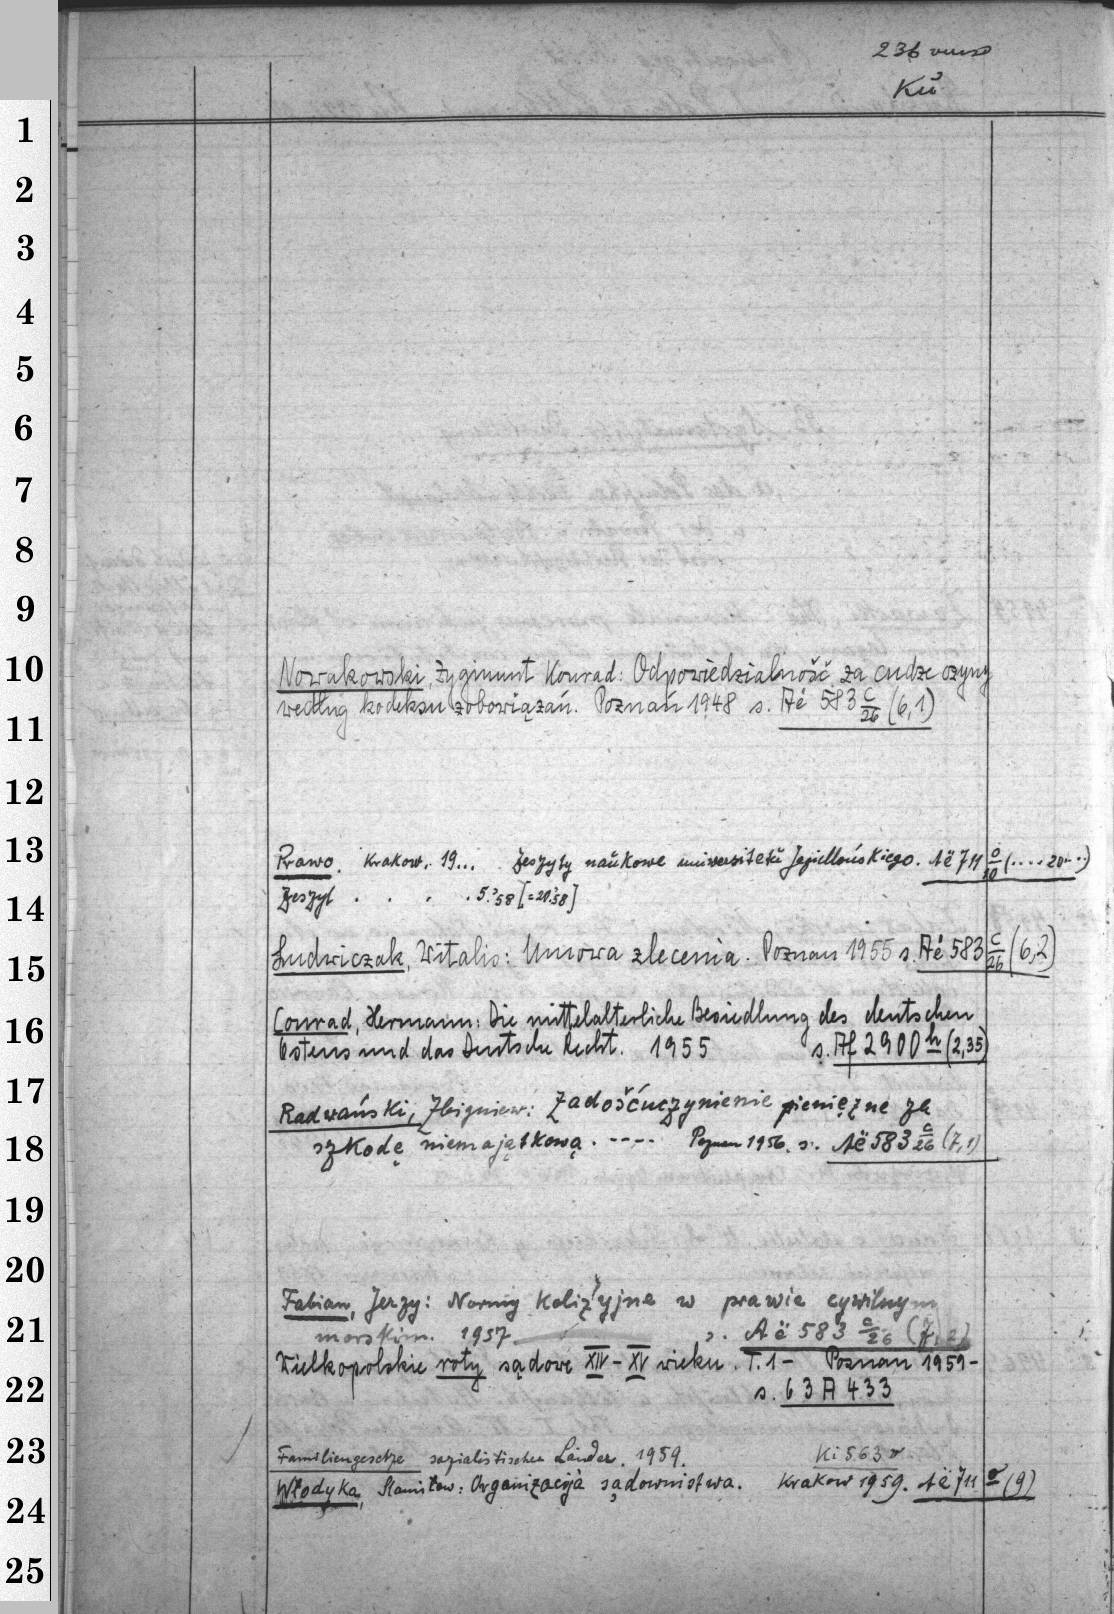 236 verso
Kü
1
2
3
4
5
6
7
8
9
10
Nowakowski, Zygmunt Konrad: Odpowiedzialność za cudze czyny
według kodeksu zobowiązań. Poznań 1948 s. Aë 583 c/26 (6,1)
11
12
13
Prawo. Krakow. 19... Zeszyty naukowe uniwersitetu Jagiellońskiego. Aë 711 o/10 (....20...)
Zeszyt . . . . 5.'58 [=20.'58]
14
Ludwiczak, Witalis: Umowa zlecenia. Poznan 1955 s. Aë 583 c/26 (6,2)
15
Conrad, Hermann: Die mittelalterliche Besiedlung des deutschen
16
Ostens und das Deutsche Recht. 1955 s. Af 2900 h (2,35)
17
Radwański, Zbigniew: Zadośćuczynienie pieniężne za
szkodę niemajątkową. ---- Poznan 1956. s. Aë 583 c/26 (7,1)
18
19
20
Fabian, Jerzy: Normy kolizyjne w prawie cywilnym
21
morskim. 1957 s. Aë 583 c/26 (7,2)
Wielkopolskie roty sądowe XIV - XV wieku. T.1 - Poznan 1959 -
22
s. 63 A 433
23
Familiengesetze sozialistischer Länder. 1959. Ki 563
Włodyka, Stanisław: Organizacija sądownistwa. Krakow 1959. Aë 711 o (9)
24
25